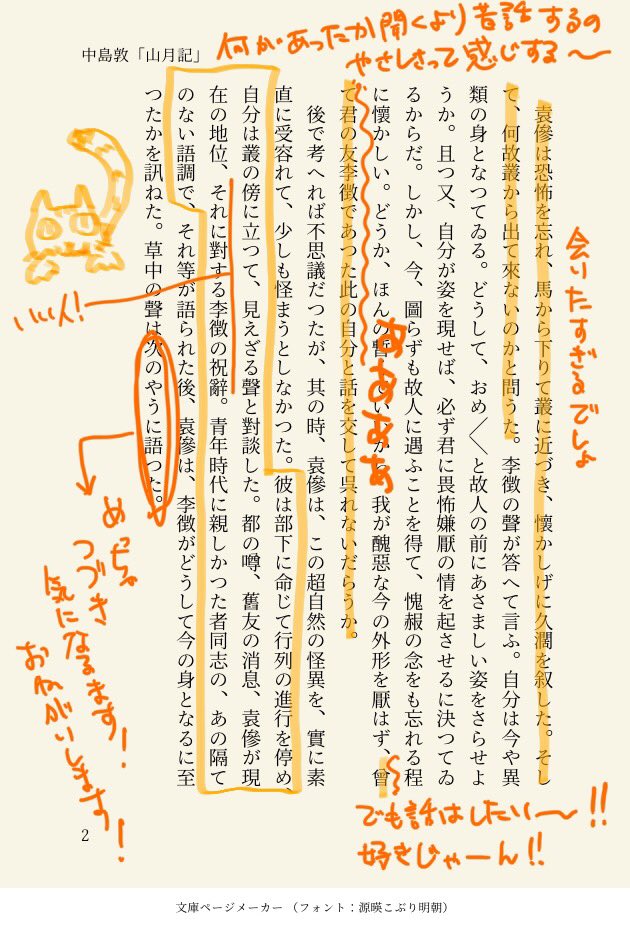 中島敦「山月記」
何があったか聞くより昔話するの
やさしさって感じする〜
袁傪は恐怖を忘れ、馬から下りて叢に近づき、懐かしげに久濶を叙した。そし
て、何故叢から出て來ないのかと問うた。李徴の聲が答へて言ふ。自分は今や異
類の身となつてゐる。どうして、おめ〳〵と故人の前にあさましい姿をさらせよ
うか。且つ又、自分が姿を現せば、必ず君に畏怖嫌厭の情を起させるに決つてゐ
るからだ。しかし、今、圖らずも故人に遇ふことを得て、愧赧の念をも忘れる程
に懐かしい。どうか、ほんの暫くでいいから、我が醜惡な今の外形を厭はず、曾
て君の友李徴であつた此の自分と話を交して呉れないだらうか。
後で考へれば不思議だつたが、其の時、袁傪は、この超自然の怪異を、實に素
直に受容れて、少しも怪まうとしなかつた。彼は部下に命じて行列の進行を停め、
自分は叢の傍に立つて、見えざる聲と對談した。都の噂、舊友の消息、袁傪が現
在の地位、それに對する李徴の祝辭。青年時代に親しかつた者同志の、あの隔て
のない語調で、それ等が語られた後、袁傪は、李徴がどうして今の身となるに至
つたかを訊ねた。草中の聲は次のやうに語つた。
会いたすぎるでしょ
ああああ
いい人!
めっちゃ
つづき
気になるます!
おねがいします!
でも話はしたい〜!!
好きじゃーん!!
2
文庫ページメーカー （フォント：源暎こぶり明朝）